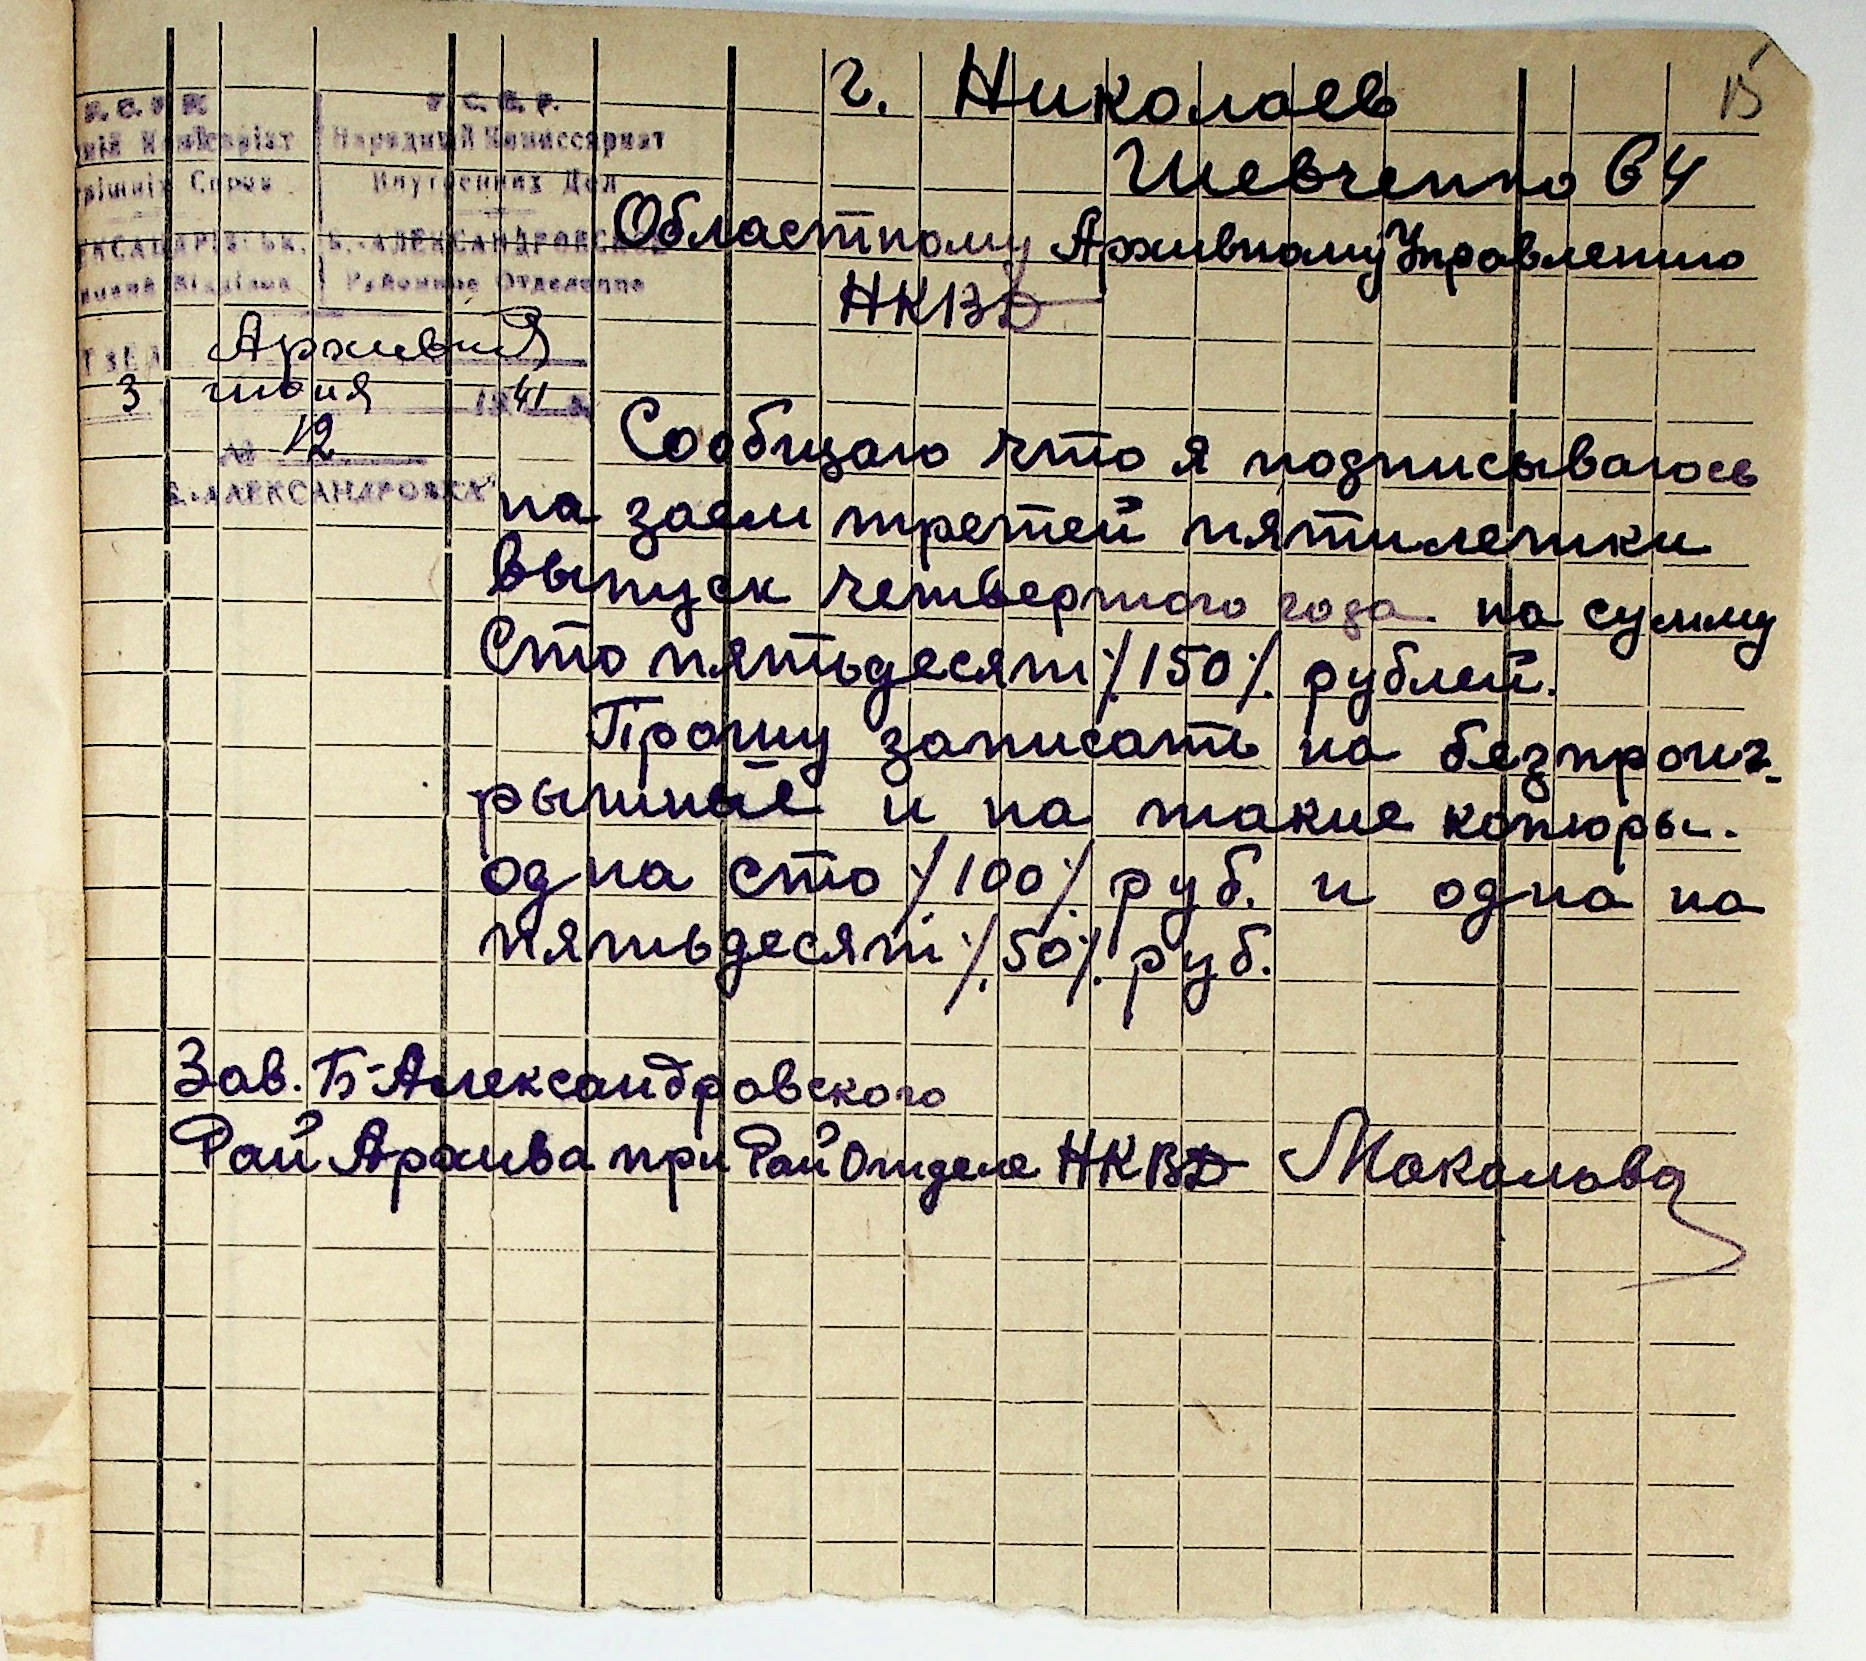 15
г. Николаев
Шевченко 64
Областному Архивному Управлению
НКВД
У.С.С.Р.
Народный Комиссариат
Внутренних Дел
Б.-АЛЕКСАНДРОВСКОЕ
Районное Отделение
Архивный
3 июня 1941 г.
№ 12
Б.-АЛЕКСАНДРОВКА
Сообщаю что я подписываюсь
на заем третей пятилетки
выпуск четвертого года на сумму
Сто пятьдесят /150/ рублей.
Прошу записать на безпроиг-
рышные и на такие копюры.
одна сто /100/ руб. и одна на
пятьдесят /50/ руб.
Зав. Б-Александровского
Рай Архива при Рай Отделе НКВД